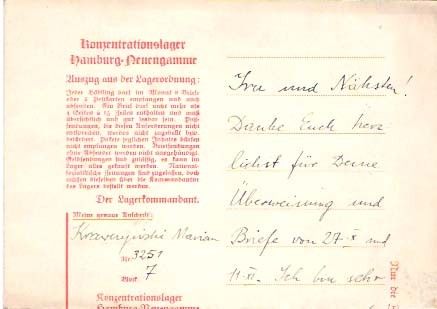 Konzentrationslager
Hamburg-Neuengamme
Auszug aus der Lagerordnung:
Jeder Häftling darf im Monat 2 Briefe
oder 2 Postkarten empfangen und auch
absenden. Ein Brief darf nicht mehr als
4 Seiten à 15 Zeilen enthalten und muß
übersichtlich und gut lesbar sein. Post-
sendungen, die diesen Anforderungen nicht
entsprechen, werden nicht zugestellt bzw.
befördert. Pakete jeglichen Inhalts dürfen
nicht empfangen werden. Postsendungen
ohne Absender werden nicht ausgehändigt.
Geldsendungen sind zulässig, es kann im
Lager alles gekauft werden. National-
sozialistische Zeitungen sind zugelassen, doch
müssen dieselben über die Kommandantur
des Lagers bestellt werden.
Der Lagerkommandant.
Meine genaue Anschrift:
Marian
Nr. 3251
Block 7
Konzentrationslager
Hamburg-Neuengamme
und Nächsten!
Danke Euch herz
lichst für Deine
Überweisung und
Briefe von 27-X und
11-XI. Ich bin sehr
Nur die